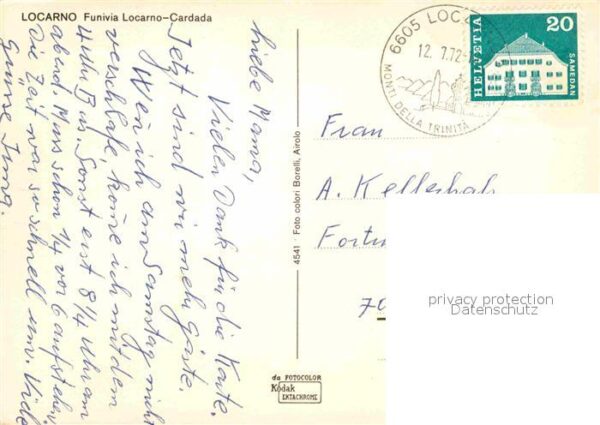 LOCARNO Funivia Locarno-Cardada
Liebe Mama,
Vielen Dank für die Karte.
Jetzt sind wir mehr Gäste.
Wen ich am Samstag nicht
verschlafe, kome ich mit dem
Bus. Sonst erst 8 1/4 Uhr am
abend. Muss schon 1/4 vor 6 aufstehen.
Die Zeit war so schnell um. Viele
Grüsse
4541 Foto colori Borelli, Airolo
da FOTOCOLOR
Kodak
EKTACHROME
6605 LOC
12. 7.72-
MONTI DELLA TRINITÀ
HELVETIA
20
SAMEDAN
Frau
A. Kellerhals
70
privacy protection
Datenschutz